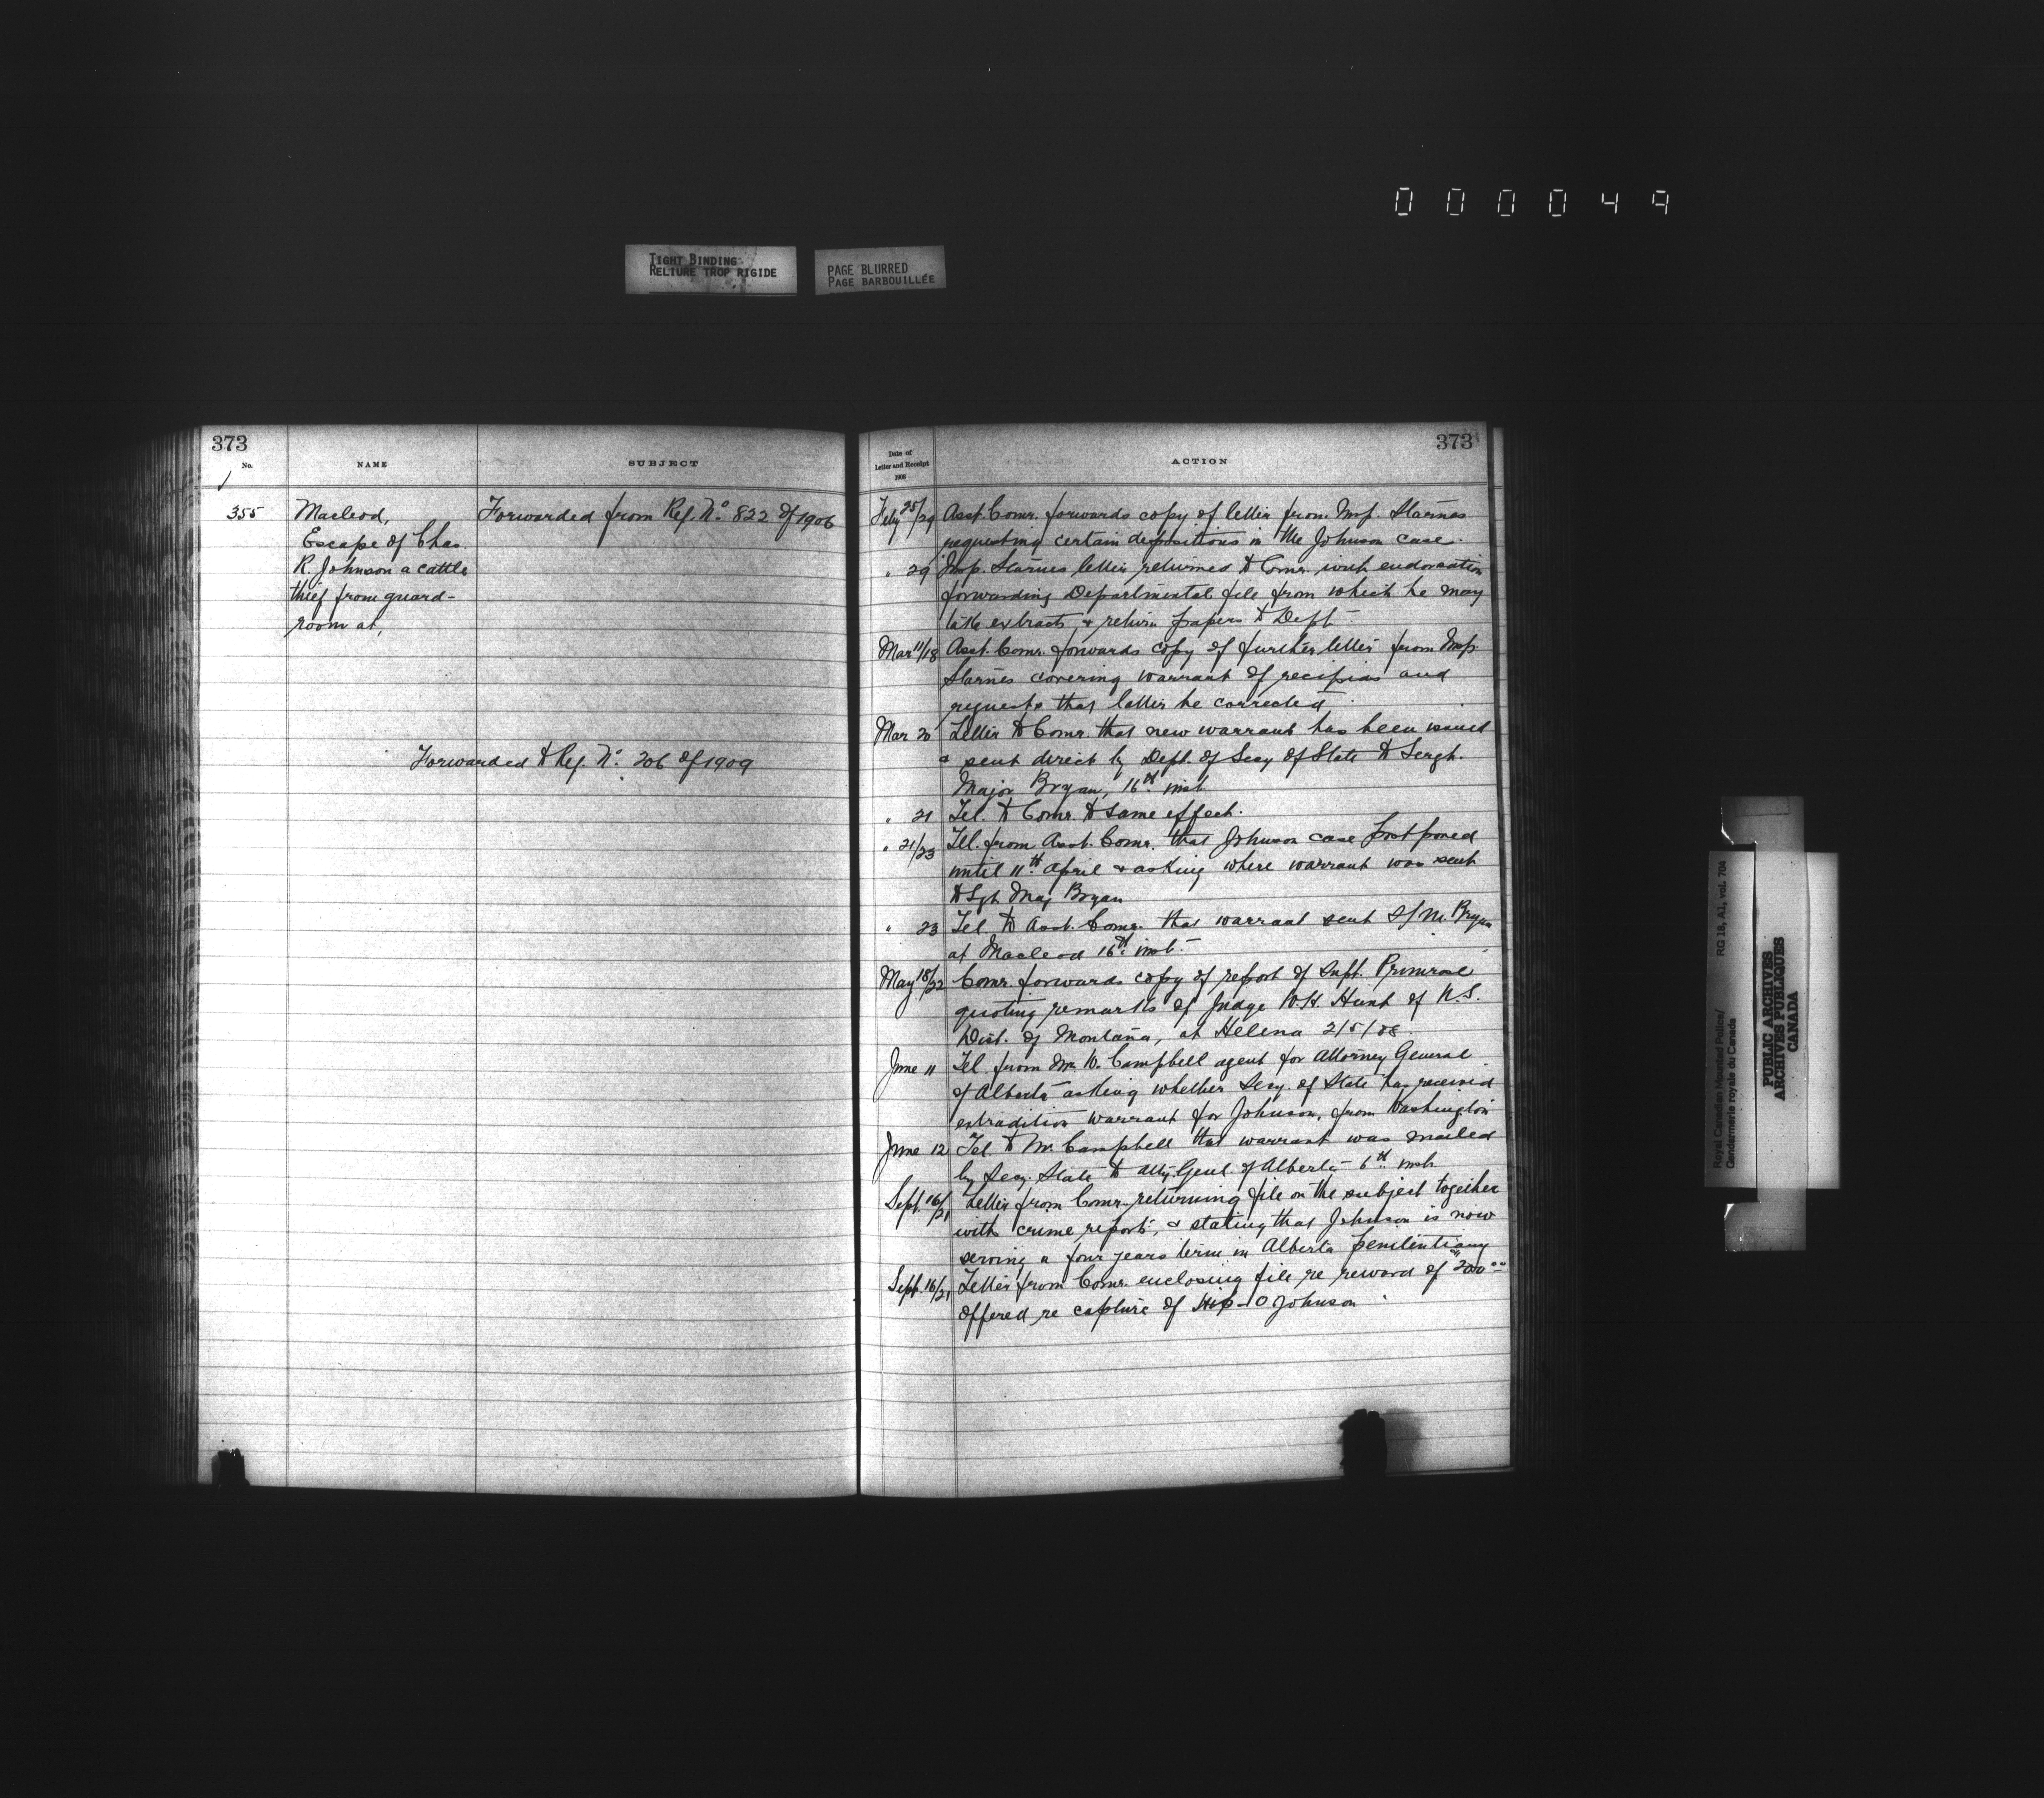 000049
TIGHT BINDING
RELIURE TROP RIGIDE
PAGE BLURRED
PAGE BARBOUILLÉE
373
No.
NAME
SUBJECT
355
Macleod,
Escape of Chas.
R. Johnson a cattle
thief from guard-
room at,
Forwarded from Ref. No. 822 of 1906
Forwarded to Ref. No. 206 of 1909
373
Date of
Letter and Receipt
1908
ACTION
Feby 25/29 Asst. Comr. forwards copy of letter from Insp. Starnes
requesting certain depositions in the Johnson case.
" 29 Insp. Starnes letter returned to Comr. with endorsation
forwarding Departmental file from which he may
take extracts & return papers to Dept.
Mar 11/18 Asst. Comr. forwards copy of further letter from Insp.
Starnes covering warrant of recipias and
requests that latter be corrected
Mar 20 Letter to Comr. that new warrant has been issued
& sent direct by Dept. of Secy of State to Sergt.
Major Bryan, 16th inst.
" 21 Tel. to Comr. to same effect.
" 21/23 Tel. from Asst. Comr. that Johnson case postponed
until 11th April & asking where warrant was sent
to Sgt Maj Bryan
" 23 Tel to Asst. Comr. that warrant sent S/M. Bryan
at Macleod 16th inst.
May 18/22 Comr. forwards copy of report of Supt. Primrose
quoting remarks of Judge W.H. Hunt of U.S.
Dist. of Montana, at Helena 2/5/08.
June 11 Tel. from Mr. W. Campbell agent for Attorney General
of Alberta asking whether Secy. of State has received
extradition warrant for Johnson, from Washington
June 12 Tel. to Mr. Campbell that warrant was mailed
by Secy. State to Atty. Genl. of Alberta 6th inst.
Sept. 16/21 Letter from Comr. returning file on the subject together
with crime report, & stating that Johnson is now
serving a four years term in Alberta penitentiary
Sept. 16/21 Letter from Comr. enclosing file re reward of $200.00
offered re capture of Hip-O Johnson
Royal Canadian Mounted Police/
Gendarmerie royale du Canada
RG 18, A1, vol. 704
PUBLIC ARCHIVES
ARCHIVES PUBLIQUES
CANADA